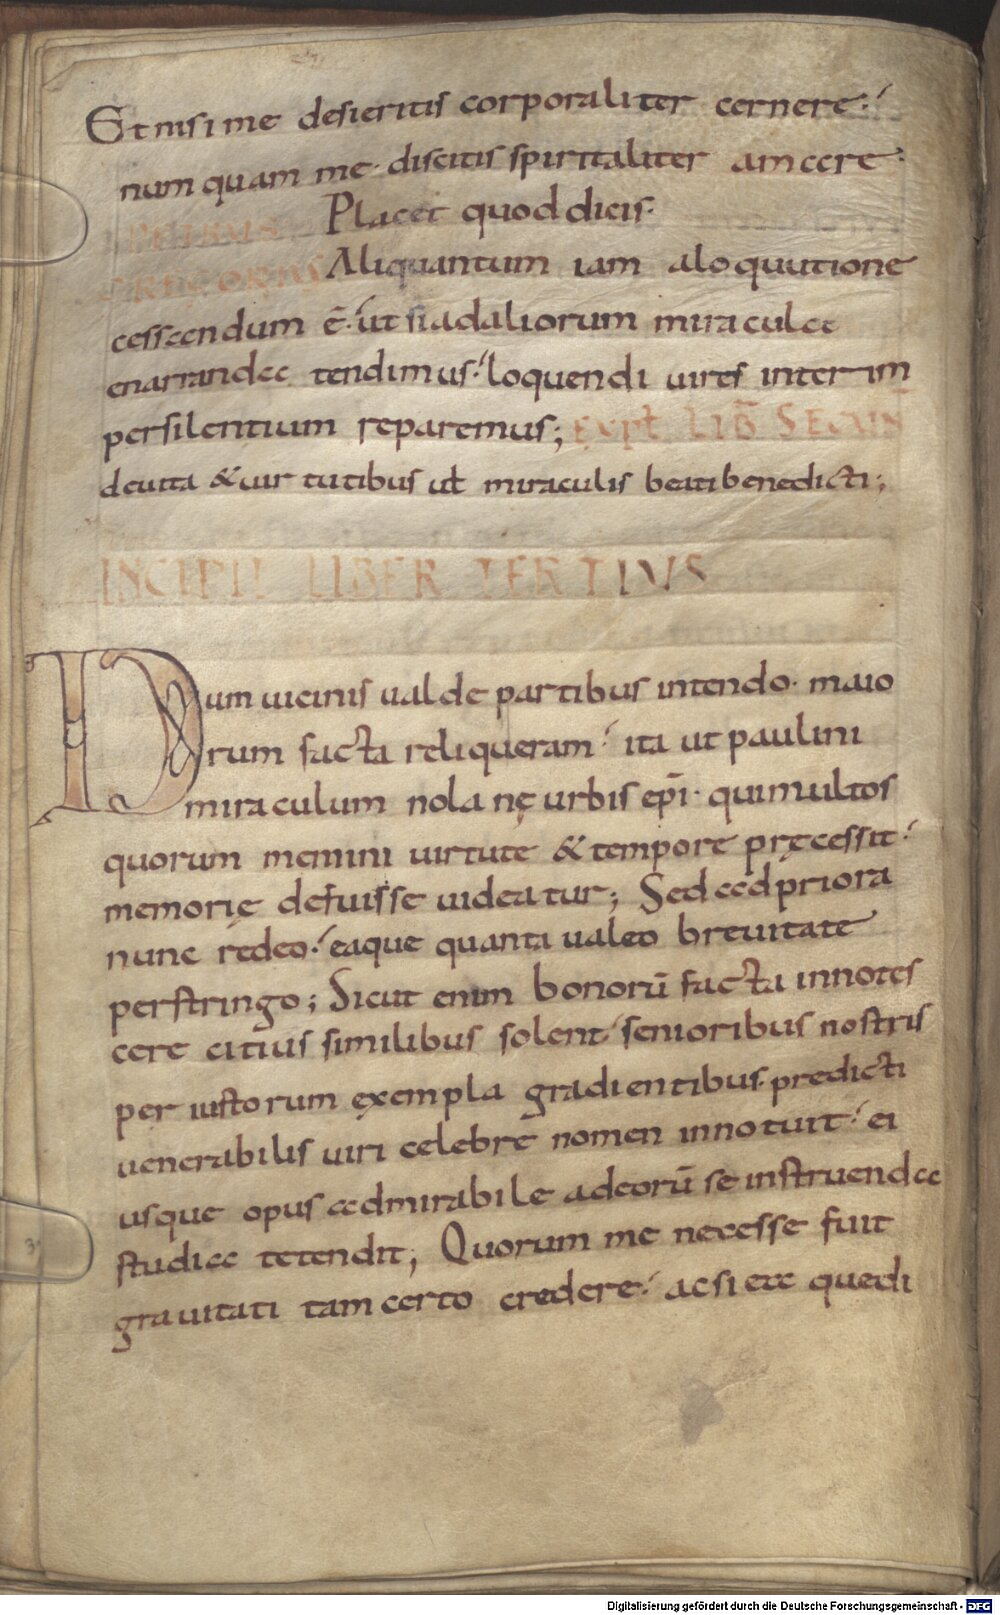 Et nisi me desieritis corporaliter cernere·
num quam me· discitis spiritaliter amare·
PETRUS Placet quod dicis·
GREGORIUS Aliquantum iam aloquutione
cessandum ē· ut si ad aliorum miracula
enarranda tendimus· loquendi uires interim
persilentium reparemus; Expƚ LIB̄ SECUN̄
deuita & uir tutibus uƚ miraculis beati benedicti;
INCIPIT LIBER TERTIUS
Dum uicinis ualde partibus intendo· maio
rum facta reliqueram· ita ut paulini
miraculum nolanę urbis ep̄i· qui multos
quorum memini uirtute & tempore pręcessit·
memorię defuisse uideatur; Sed ad priora
nunc redeo· eaque quanta ualeo breuitate
perstringo; Sicut enim bonorū facta innotes
cere citius similibus solent· senioribus nostris
per iustorum exempla gradientibus· predicti
uenerabilis uiri celebre nomen innotuit· ei
usque opus admirabile adeorū se instruenda
studia tetendit; Quorum me necesse fuit
grauitati tam certo credere· acsi ea quedi
Digitalisierung gefördert durch die Deutsche Forschungsgemeinschaft - DFG